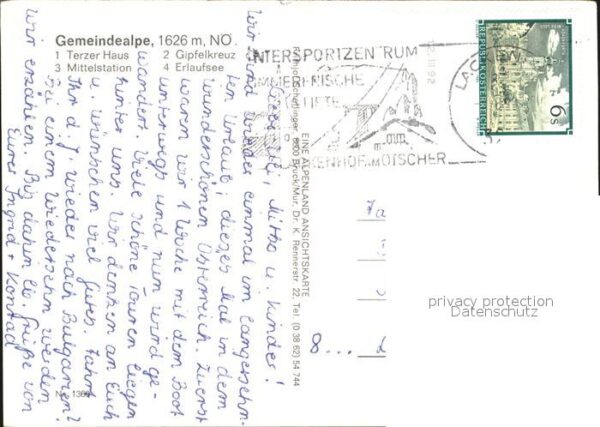 Gemeindealpe, 1626 m, NÖ.
1 Terzer Haus 2 Gipfelkreuz
3 Mittelstation 4 Erlaufsee
Liebe Mitko u. Kinder!
Wir sind wieder einmal im langersehn-
ten Urlaub, dieses Mal in dem
wunderschönen Österreich. Zuerst
waren wir 1 Woche mit dem Boot
unterwegs und nun wird ge-
wandert. Viele schöne Touren liegen
hinter uns. Wir denken an Euch
u. wünschen viel Gutes. Fahrt
Ihr d. J. wieder nach Bulgarien?
Bei einem Wiedersehn werden
wir erzählen. Bis dahin lb. Grüße von
Eurer Ingrid + Konrad
EINE ALPENLAND ANSICHTSKARTE
Bruck/Mur, Dr. K. Rennerstr. 22, Tel. (0 38 62) 54 744
WINTERSPORTZENTRUM
ÖTSCHER
92
REPUBLIK ÖSTERREICH
6 S
8...
privacy protection
Datenschutz